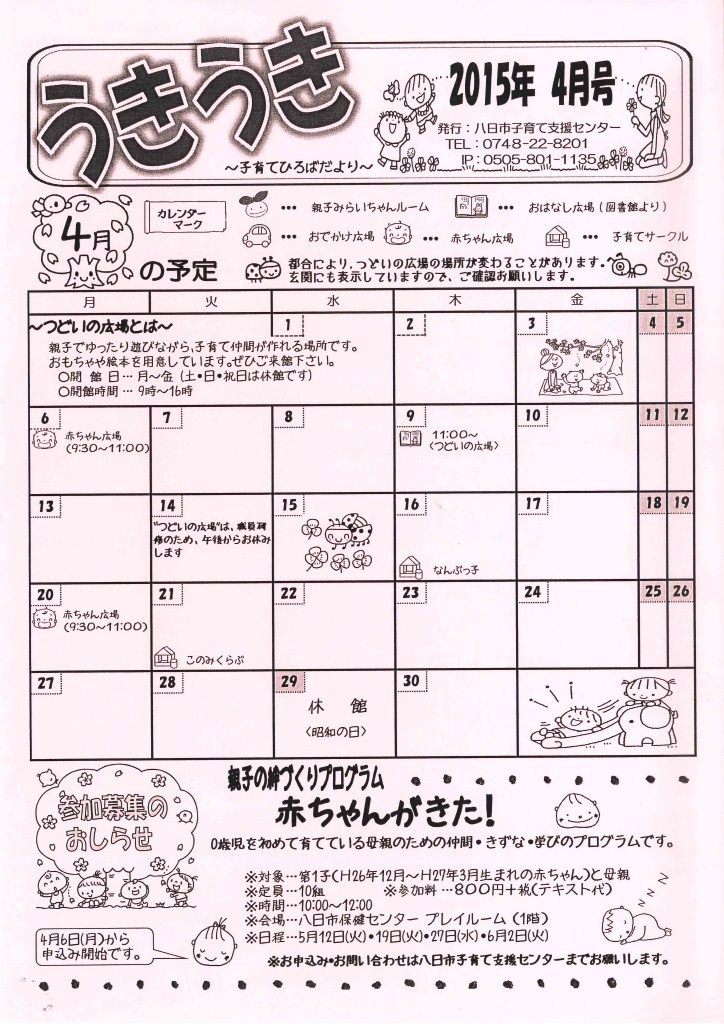 うきうき
～子育てひろばだより～
2015年 4月号
発行：八日市子育て支援センター
TEL：0748-22-8201
IP：0505-801-1135
4月
の予定
カレンダーマーク
… 親子みらいちゃんルーム
… おはなし広場（図書館より）
… おでかけ広場
… 赤ちゃん広場
… 子育てサークル
都合により、つどいの広場の場所が変わることがあります。
玄関にも表示していますので、ご確認お願いします。
月 火 水 木 金 土 日
～つどいの広場とは～
親子でゆったり遊びながら、子育て仲間が作れる場所です。
おもちゃや絵本を用意しています。ぜひご来館下さい。
○開 館 日… 月～金（土・日・祝日は休館です）
○開館時間 … 9時～16時
1 2 3 4 5
6 7 8 9 10 11 12
赤ちゃん広場
(9:30～11:00)
11:00～
〈つどいの広場〉
13 14 15 16 17 18 19
"つどいの広場"は、職員研
修のため、午後からお休み
します
なんぶっ子
20 21 22 23 24 25 26
赤ちゃん広場
(9:30～11:00)
このみくらぶ
27 28 29 30
休 館
〈昭和の日〉
参加募集の
おしらせ
親子の絆づくりプログラム
赤ちゃんがきた！
0歳児を初めて育てている母親のための仲間・きずな・学びのプログラムです。
※対象…第1子(H26年12月～H27年3月生まれの赤ちゃん)と母親
※定員…10組 ※参加料 …800円+税(テキスト代)
※時間…10:00～12:00
※会場…八日市保健センター プレイルーム (1階)
※日程…5月12日(火)・19日(火)・27日(水)・6月2日(火)
4月6日(月)から
申込み開始です。
※お申込み・お問い合わせは八日市子育て支援センターまでお願いします。